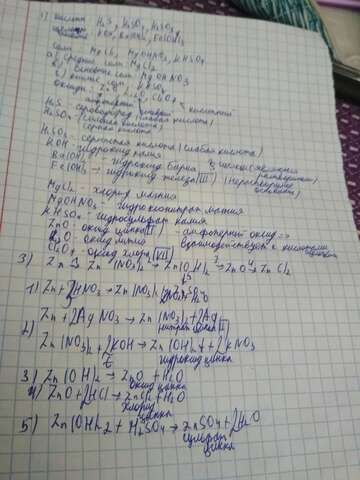 1) кислоты H2S, H2SO3, H2SO4
KOH, Ba(OH)2, Fe(OH)3
соли MgCl2, MgOHNO3, KHSO4
а) средние соли: MgCl2
б) основные соли MgOHNO3
в) кислые соли KHSO4
оксиды: ZnO, Li2O, ClO3
амфотерный кислотный
H2S - сероводород (слабая кислота)
H2SO4 (сильная кислота)
серная кислота
H2SO3 - сернистая кислота (слабая кислота)
KOH - гидроксид калия
Ba(OH)2 - гидроксид бария
Fe(OH)3 - гидроксид железа (III) (нерастворимое
MgCl2 - хлорид магния
MgOHNO3 - гидроксонитрат магния
KHSO4 - гидросульфат калия
ZnO - оксид цинка (II) - амфотерный оксид =>
Li2O - оксид лития взаимодействует с кислотами
оксид хлора (VI)
3) Zn → Zn(NO3)2 → Zn(OH)2 3→ ZnO 4→ ZnCl2
1) Zn + 2HNO3 → Zn(NO3)2
Zn + 2AgNO3 → Zn(NO3)2 + 2Ag
нитрат цинка
2) Zn(NO3)2 + 2KOH → Zn(OH)2↓ + 2KNO3
гидроксид цинка
3) Zn(OH)2 t→ ZnO + H2O
оксид цинка
4) ZnO + 2HCl → ZnCl2 + H2O
хлорид
цинка
5) Zn(OH)2 + H2SO4 → ZnSO4 + 2H2O
сульфат
цинка